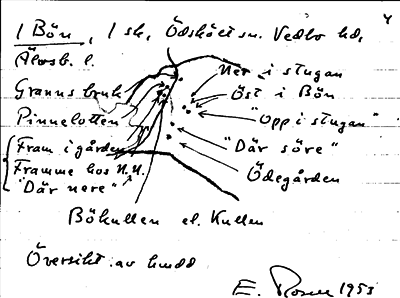 4
1 Bön, 1 sk, Ödskölt sn. Vedbo hd,
Älvsb. l.
Granns bruk
Pinnelotten
Fram i gården
Framme hos N.N.
"Där nere"
Ner i stugan
Öst i Bön
"Opp i stugan"
"Där söre"
Ödegården
Bökullen el. Kullen
Översikt av
E. Rosen 1953